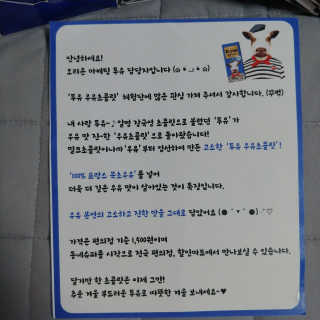 안녕하세요!
오리온 마케팅 투유 담당자입니다 (๑•ᴗ•๑)
'투유 우유초콜릿' 체험단에 많은 관심 가져 주셔서 감사합니다. (꾸벅)
내 사랑 투유~♪ 일명 장국영 초콜릿으로 불렸던 '투유'가
우유 맛 진~한 '우유초콜릿'으로 돌아왔습니다!
밀크초콜릿이니까 '우유'부터 엄선하여 만든 고소한 '투유 우유초콜릿'!
'100% 프랑스 분초우유'를 넣어
더욱 더 깊은 우유 맛이 살아있는 것이 특징입니다.
우유 본연의 고소하고 진한 맛을 그대로 담았어요 (●´▾`●) ♡
가격은 편의점 기준 1,500원이며
동네슈퍼를 시작으로 전국 편의점, 할인마트에서 만나보실 수 있습니다.
달기만 한 초콜릿은 이제 그만!
추운 겨울 부드러운 투유로 따뜻한 겨울 보내세요~♥